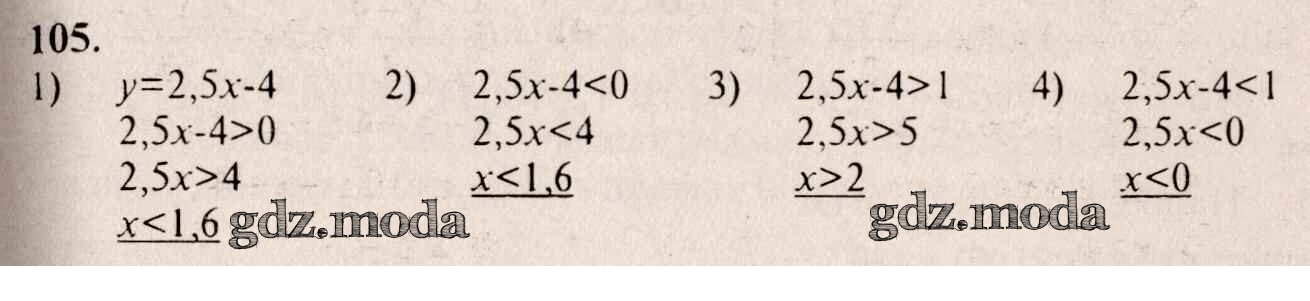 105.
1) y=2,5x-4
2,5x-4>0
2,5x>4
x<1,6
2) 2,5x-4<0
2,5x<4
x<1,6
3) 2,5x-4>1
2,5x>5
x>2
4) 2,5x-4<1
2,5x<0
x<0
gdz.moda
gdz.moda